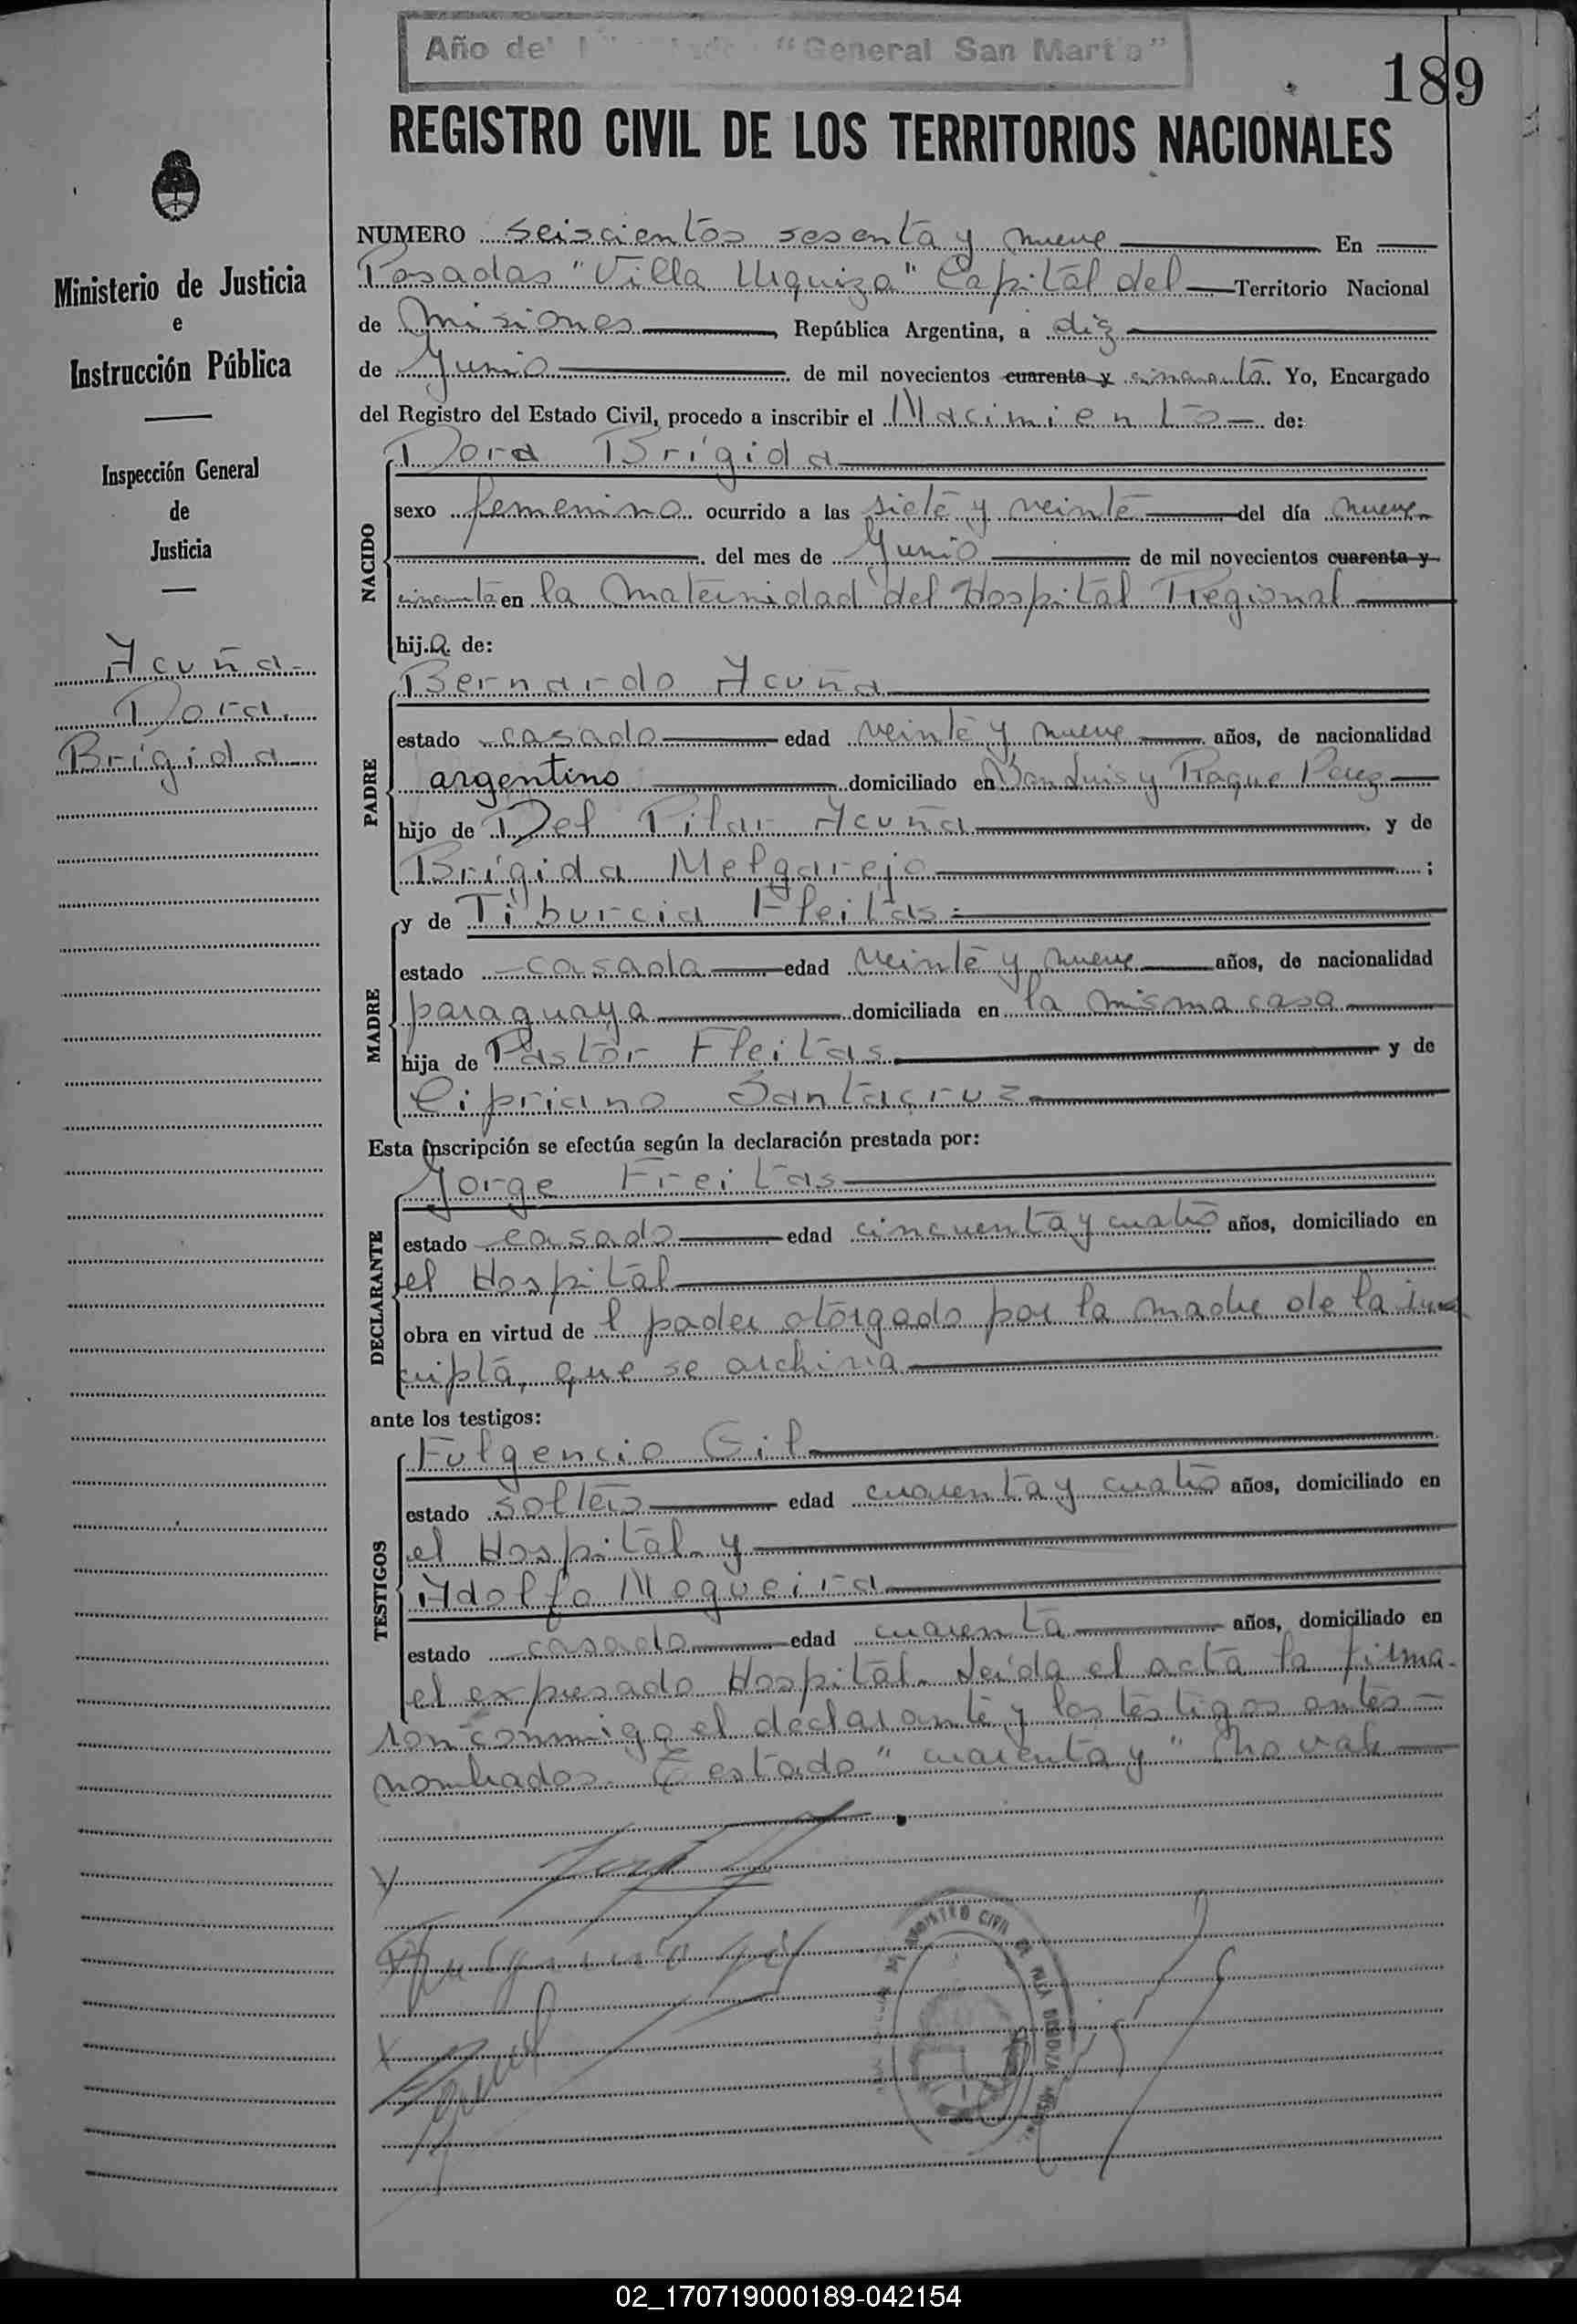 Año del "General San Martín"
189
REGISTRO CIVIL DE LOS TERRITORIOS NACIONALES
Ministerio de Justicia
e
Instrucción Pública
Inspección General
de
Justicia
Acuña
Dora
Brígida
NUMERO seiscientos sesenta y nueve En
Posadas "Villa Urquiza" Capital del Territorio Nacional
de Misiones, República Argentina, a diez
de Junio de mil novecientos cuarenta y cincuenta. Yo, Encargado
del Registro del Estado Civil, procedo a inscribir el Nacimiento de:
NACIDO
Dora Brígida
sexo femenino ocurrido a las siete y veinte del día nueve
del mes de Junio de mil novecientos cuarenta y
cincuenta en la Maternidad del Hospital Regional
hija de:
PADRE
Bernardo Acuña
estado casado edad veinte y nueve años, de nacionalidad
argentino domiciliado en San Luis y Roque Perez
hijo de Del Pilar Acuña y de
Brígida Melgarejo;
MADRE
y de Tiburcia Fleitas
estado casada edad veinte y nueve años, de nacionalidad
paraguaya domiciliada en la misma casa
hija de Pastor Fleitas y de
Cipriano Santacruz
Esta inscripción se efectúa según la declaración prestada por:
DECLARANTE
Jorge Freitas
estado casado edad cincuenta y cuatro años, domiciliado en
el Hospital
obra en virtud de l poder otorgado por la madre de la ins
cripta, que se archiva
ante los testigos:
TESTIGOS
Fulgencio Gil
estado soltero edad cuarenta y cuatro años, domiciliado en
el Hospital y
Adolfo Nogueira
estado casado edad cuarenta años, domiciliado en
el expresado Hospital. Leída el acta la firma
ron conmigo el declarante y los testigos antes
nombrados. "cuarenta y" no vale
Fulgencio Gil
REGISTRO CIVIL
02_170719000189-042154